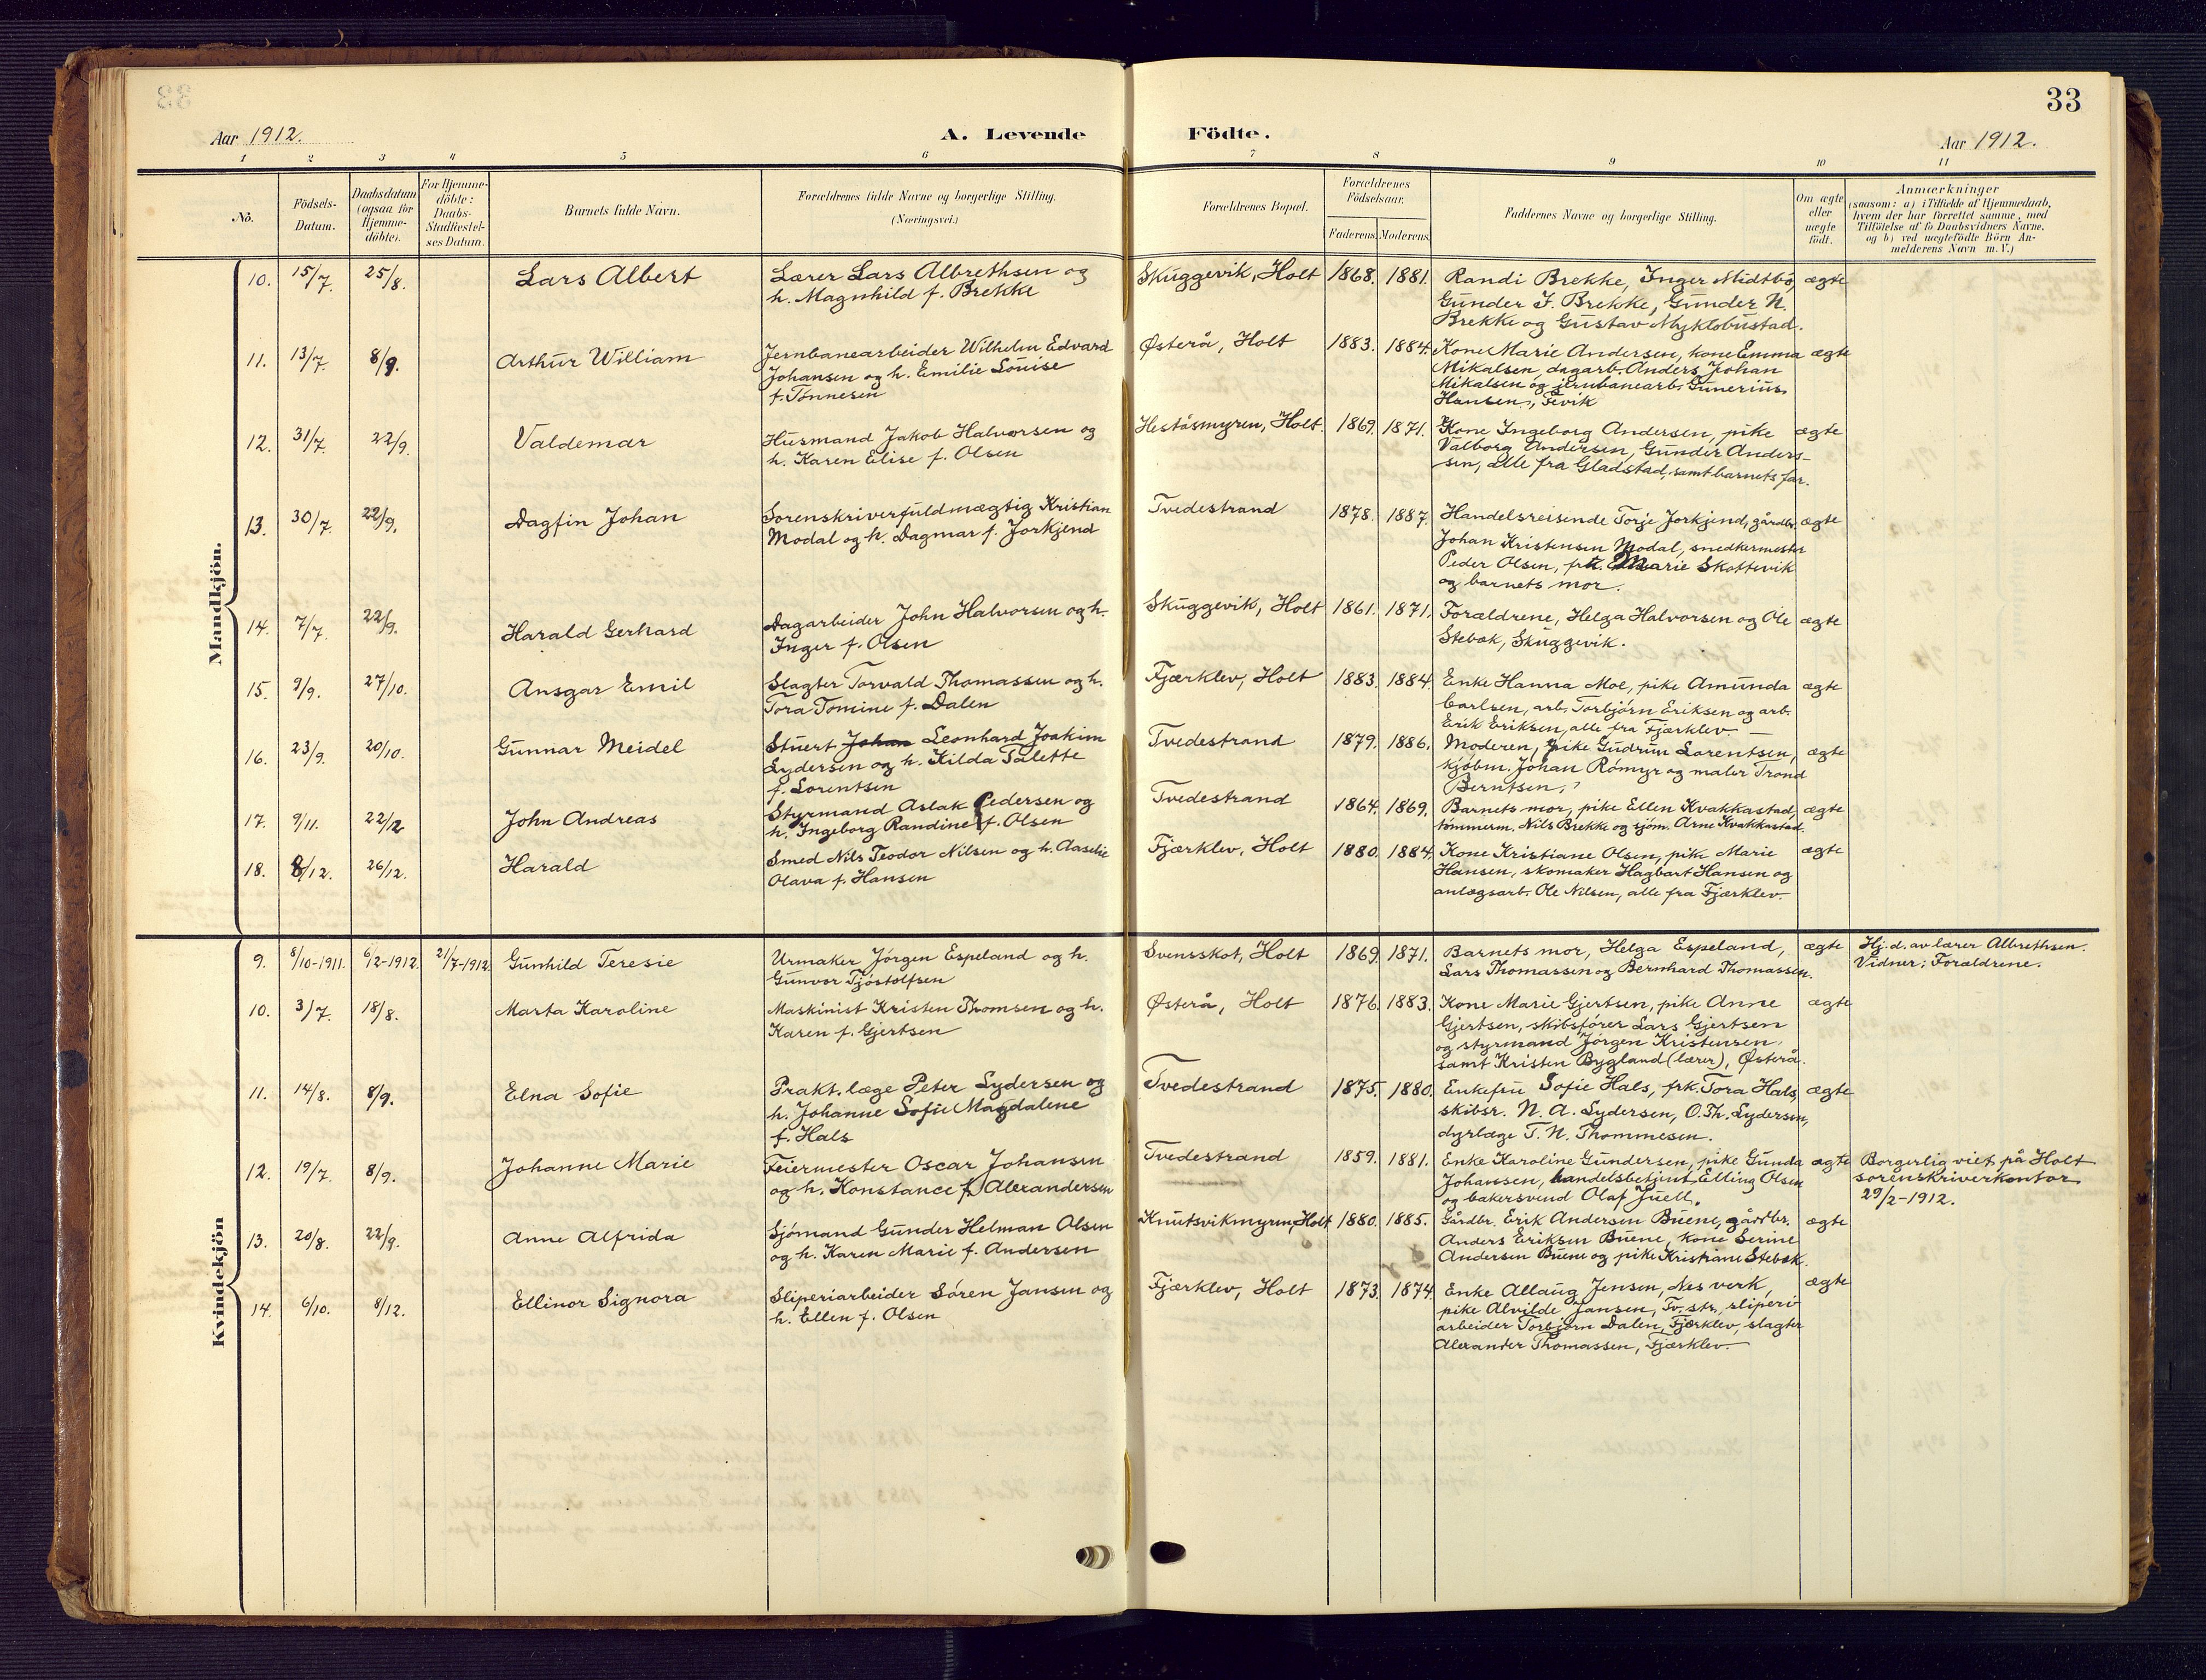 33
Aar 1912.
A. Levende
Födte.
Aar 1912.
1 2 3 4 5 6 7 8 9 10 11
Nö.
Födsels-
Datum.
Daabsdatum
(ogsaa for
Hjemme-
döbte).
For Hjemme-
döbte:
Daabs-
Stadfæstel-
ses Datum.
Barnets fulde Navn.
Forældrenes fulde Navne og borgerlige Stilling.
(Næringsvei.)
Forældrenes Bopæl.
Forældrenes
Födselsaar.
Faderens. Moderens.
Faddernes Navne og borgerlige Stilling.
Om ægte
eller
uægte
födt.
Anmærkninger
(saasom: a) i Tilfælde af Hjemmedaab,
hvem der har forrettet samme, med
Tilföielse af to Daabsvidners Navne.
og b) ved uægtefödte Börn An-
melderens Navn m. V.)
Mandkjön.
10. 15/7. 25/8. Lars Albert
Lærer Lars Albrethsen og
h. Magnhild f. Brekke
Skuggevik, Holt 1868. 1881.
Randi Brekke, Inger Midtbø,
Gunder J. Brekke, Gunder N.
Brekke og Gustav Myklobustad.
ægte
11. 13/7. 8/9. Arthur William
Jernbanearbeider Wilhelm Edvard
Johansen og h. Emilie Louise
f. Tønnesen
Østerå, Holt 1883. 1884.
Kone Marie Andersen, kone Emma
Mikalsen, dagarb. Anders Johan
Mikalsen og jernbanearb. Gunerius
Hansen, Fevik
ægte
12. 31/7. 22/9. Valdemar
Husmand Jakob Halvorsen og
h. Karen Elise f. Olsen
Heståsmyren, Holt. 1869. 1871.
Kone Ingeborg Andersen, pike
Valborg Andersen, Gunder Anders-
sen, alle fra Gladstad, samt barnets far.
ægte
13. 30/7. 22/9. Dagfin Johan
Sorenskriverfuldmægtig Kristian
Modal og h. Dagmar f. Jorkjend
Tvedestrand 1878. 1887.
Handelsreisende Torje Jorkjend, gårdbr.
Johan Kristensen Modal, snedkermester
Peder Olsen, frk. Marie Skottevik
og barnets mor.
ægte
14. 7/7. 22/9. Harald Gerhard
Dagarbeider John Halvorsen og h.
Inger f. Olsen
Skuggevik, Holt 1861. 1871.
Forældrene, Helga Halvorsen og Ole
Stebæk, Skuggevik.
ægte
15. 9/9. 27/10. Ansgar Emil
Slagter Torvald Thomassen og h.
Tora Tomine f. Dalen
Fjærklev, Holt 1883. 1884.
Enke Hanna Moe, pike Amunda
Carlsen, arb. Torbjørn Eriksen og arb.
Erik Eriksen, alle fra Fjærklev.
ægte
16. 23/9. 20/10. Gunnar Meidel
Stuert Johan Leonhard Joakim
Lydersen og h. Hilda Talette
f. Lorentsen
Tvedestrand 1879. 1886.
Moderen, pike Gudrun Lorentsen,
kjøbm. Johan Rømyr og maler Trond
Berntsen,
ægte
17. 9/11. 22/12 John Andreas
Styrmand Aslak Pedersen og
h. Ingeborg Randine f. Olsen
Tvedestrand 1864. 1869.
Barnets mor, pike Ellen Kvakkastad,
tømmerm. Nils Brekke og sjøm. Arne Kvakkastad.
ægte
18. 8/12. 26/12. Harald
Smed Nils Teodor Nilsen og h. Aaselie
Olava f. Hansen
Fjærklev, Holt 1880. 1884.
Kone Kristiane Olsen, pike Marie
Hansen, skomaker Hagbart Hansen og
anlægsarb. Ole Nilsen, alle fra Fjærklev.
ægte
Kvindekjön
9. 8/10-1911. 6/2-1912. 21/7-1912. Gunhild Teresie
Urmaker Jørgen Espeland og h.
Gunvor Tjøstolfsen
Svensskot, Holt 1869. 1871.
Barnets mor, Helga Espeland,
Lars Thomassen og Bernhard Thomassen.
ægte
Hj. d. av lærer Albrethsen.
Vidner: Forældrene.
10. 3/7. 18/8. Marta Karoline
Maskinist Kristen Thomsen og h.
Karen f. Gjertsen
Østerå, Holt 1876. 1883.
Kone Marie Gjertsen, pike Anne
Gjertsen, skibsfører Lars Gjertsen
og styrmand Jørgen Kristensen,
samt Kristen Bygland (lærer), Østerå.
ægte
11. 14/8. 8/9. Elna Sofie
Prakt. læge Peter Lydersen og
h. Johanne Sofie Magdalene
f. Hals
Tvedestrand 1875. 1880.
Enkefru Sofie Hals, frk. Tora Hals,
skibsr. N. A. Lydersen, O. Th. Lydersen,
dyrlæge T. N. Thommesen.
ægte
12. 19/7. 8/9. Johanne Marie
Feiermester Oscar Johansen
og h. Konstance f. Alexandersen
Tvedestrand 1859. 1881.
Enke Karoline Gundersen, pike Gunda
Johanssen, handelsbetjent Elling Olsen
og bakersvend Olaf Juell.
ægte
Borgerlig viet på Holt
sorenskriverkontor
29/2-1912.
13. 20/8. 22/9. Anne Alfrida
Sjømand Gunder Helman Olsen
og h. Karen Marie f. Andersen
Knutsvikmyren, Holt 1880. 1885.
Gårdbr. Erik Andersen Buene, gårdbr.
Anders Eriksen Buene, kone Serine
Andersen Buene og pike Kristiane Stebæk.
ægte
14. 6/10. 8/12. Ellinor Signora
Sliperiarbeider Søren Jansen og
h. Ellen f. Olsen
Fjærklev, Holt 1873. 1874.
Enke Allaug Jensen, Nes verk,
pike Alvilde Jansen, Tv. str., sliperi-
arbeider Torbjørn Dalen, Fjærklev, slagter
Alexander Thomassen, Fjærklev.
ægte